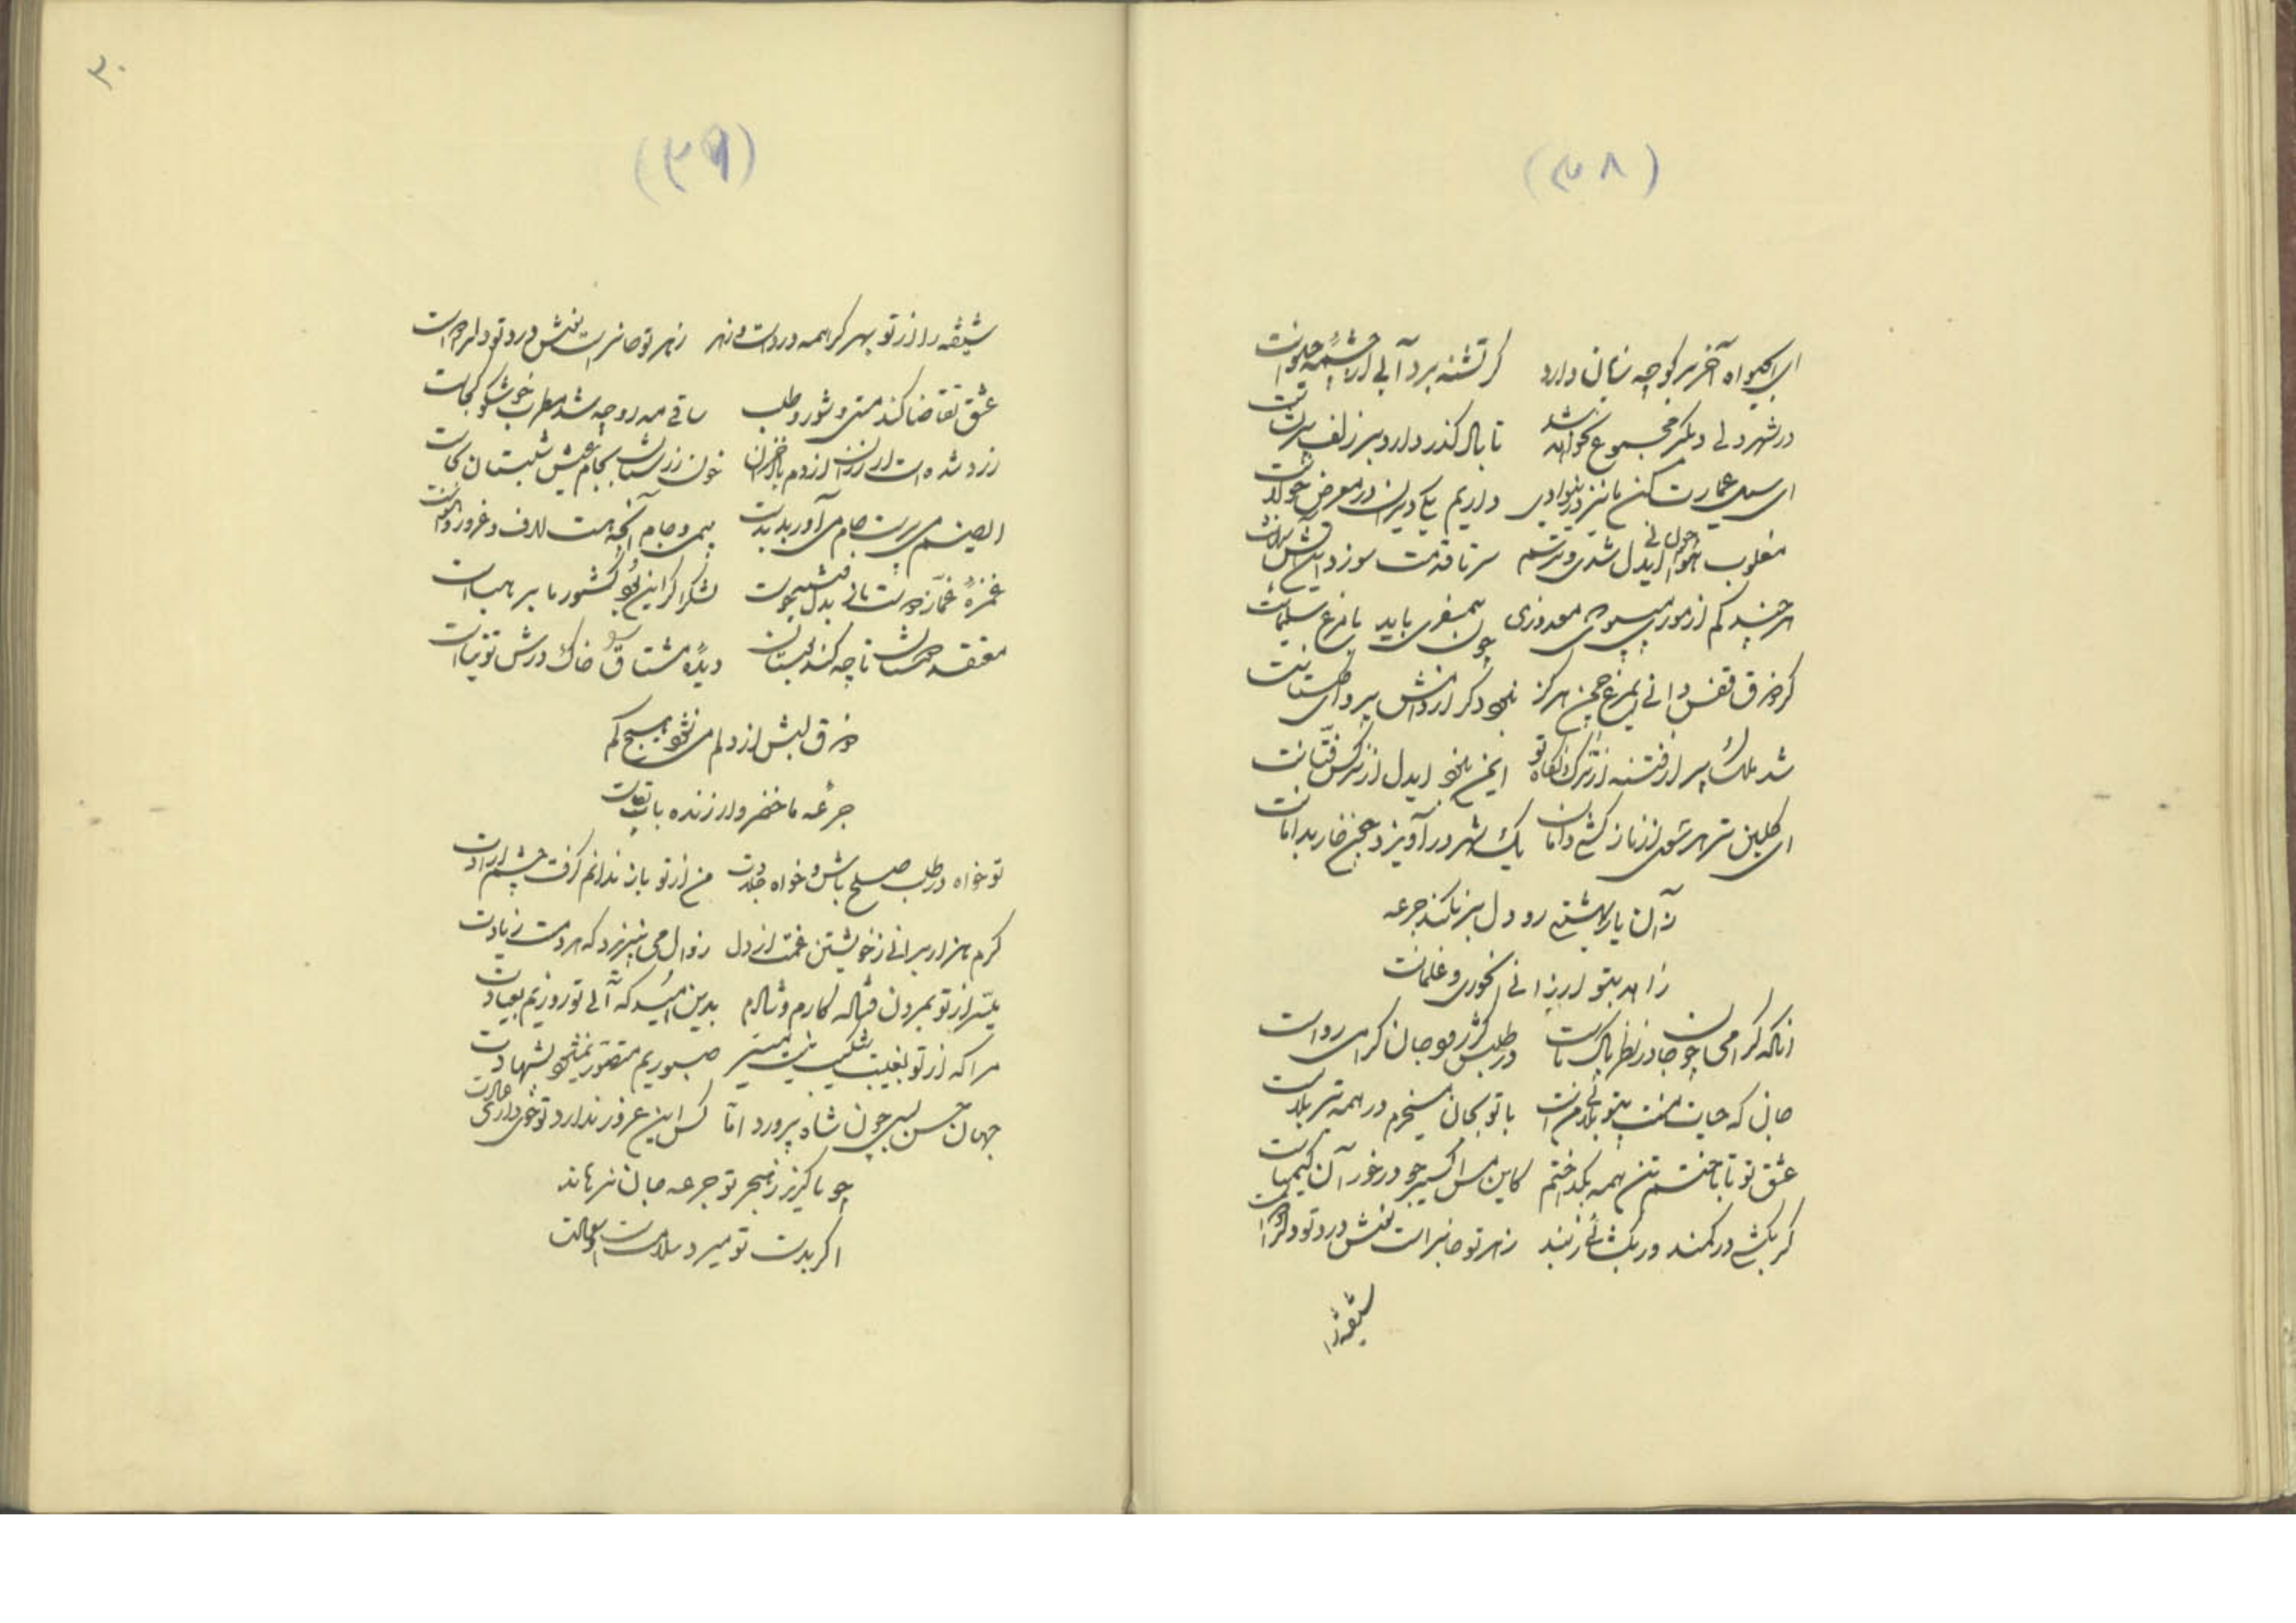 (۳۸)
ای آخر بر کوچه زیان دارد گر تشنه برد آبی از چشمهٔ حیوانت
در شهر دلی دیگر مجموع نخواهد شد تا بال گذر دارد بر زلف پریشانت
ای سیل عمارت کن ما نیز در این وادی داریم یکی ویران در معرض جولانت
مغلوب هوا ایدل شدی و ترسم سر تا قدمت سوزد این آتش
هر چند کم از موری میپوی معذوری چون همسفری باید با مرغ سلیمانت
گر ذوق قفس دانی ایمرغ چمن هرگز نبود دگر از دامش پروای گلستانت
شد ملک پر از فتنه از ترک نگاه تو ایمن نبود ایدل از نرگس فتانت
ای گلبن تر هر سو از ناز کشی دامان یک شهر در آویزد چون خار بدامانت
زان یار بهشتی رو دل بر نکند جرعه
زاهد بتو ارزانی حوری و غلمانت
آنکه گرامی چو جان در نظر پاک ماست در طلبش گر رود جان گرامی رواست
جان که حیات منست بیتو بلای منست با تو بجان میخرم در همه تیر بلاست
عشق تو تا باختم تن همه بگداختم کاین مس اکسیر جو در خور آن کیمیاست
گر بکشی در کمند ور بکشائی ز بند زهر تو جانپرور است نیش درد تو دلرا دواست
شیفته را
۳۰
(۳۹)
شیفته را از تو بهر گر همه درد است و زهر زهر تو جانپرور است نیش درد تو دلرا دواست
عشق تقاضا کند مستی و شور و طلب ساقی مه رو چه شد مطرب خوشگو کجاست
زرد شده است از رزان از دم باد خزان خون رزستان بجام عیش شبستان کجاست
ایصنم می پرست جام می آور بدست بی می و جام آنچه هست لاف و غرور و
غمزهٔ غماز دوست تا پی بدل لشکر اگر این بود کشور ما بر هباست
معتقد تا چه کند بوستان دیدهٔ مشتاق کو خاک درش توتیاست
ذوق لبش از دلم می نشود هیچ کم
جرعه ما خضر وار زنده بآب بقاست
تو خواه در طلب صلح باش و خواه جلادت من از تو باز ندانم گرفت چشم ارادت
گرم هزار برانی ز خویشتن غمت از دل زوال می نپذیرد که هر دمست زیادت
بتر از تو بمردن فتاده کارم و شادم بدین امید که آئی تو روزیم بعیادت
مرا که از تو بغیبت شکیب نیست میسر صبوریم متصور نمیشود بشهادت
جهان حسن بسی چون تو شاه پرورد اما کس این غرور ندارد تو خوی داری و عادت
چو ناگزیر ز هجر تو جرعه جان نرهاند
اگر بدست تو میرد سلامت است و سعادت